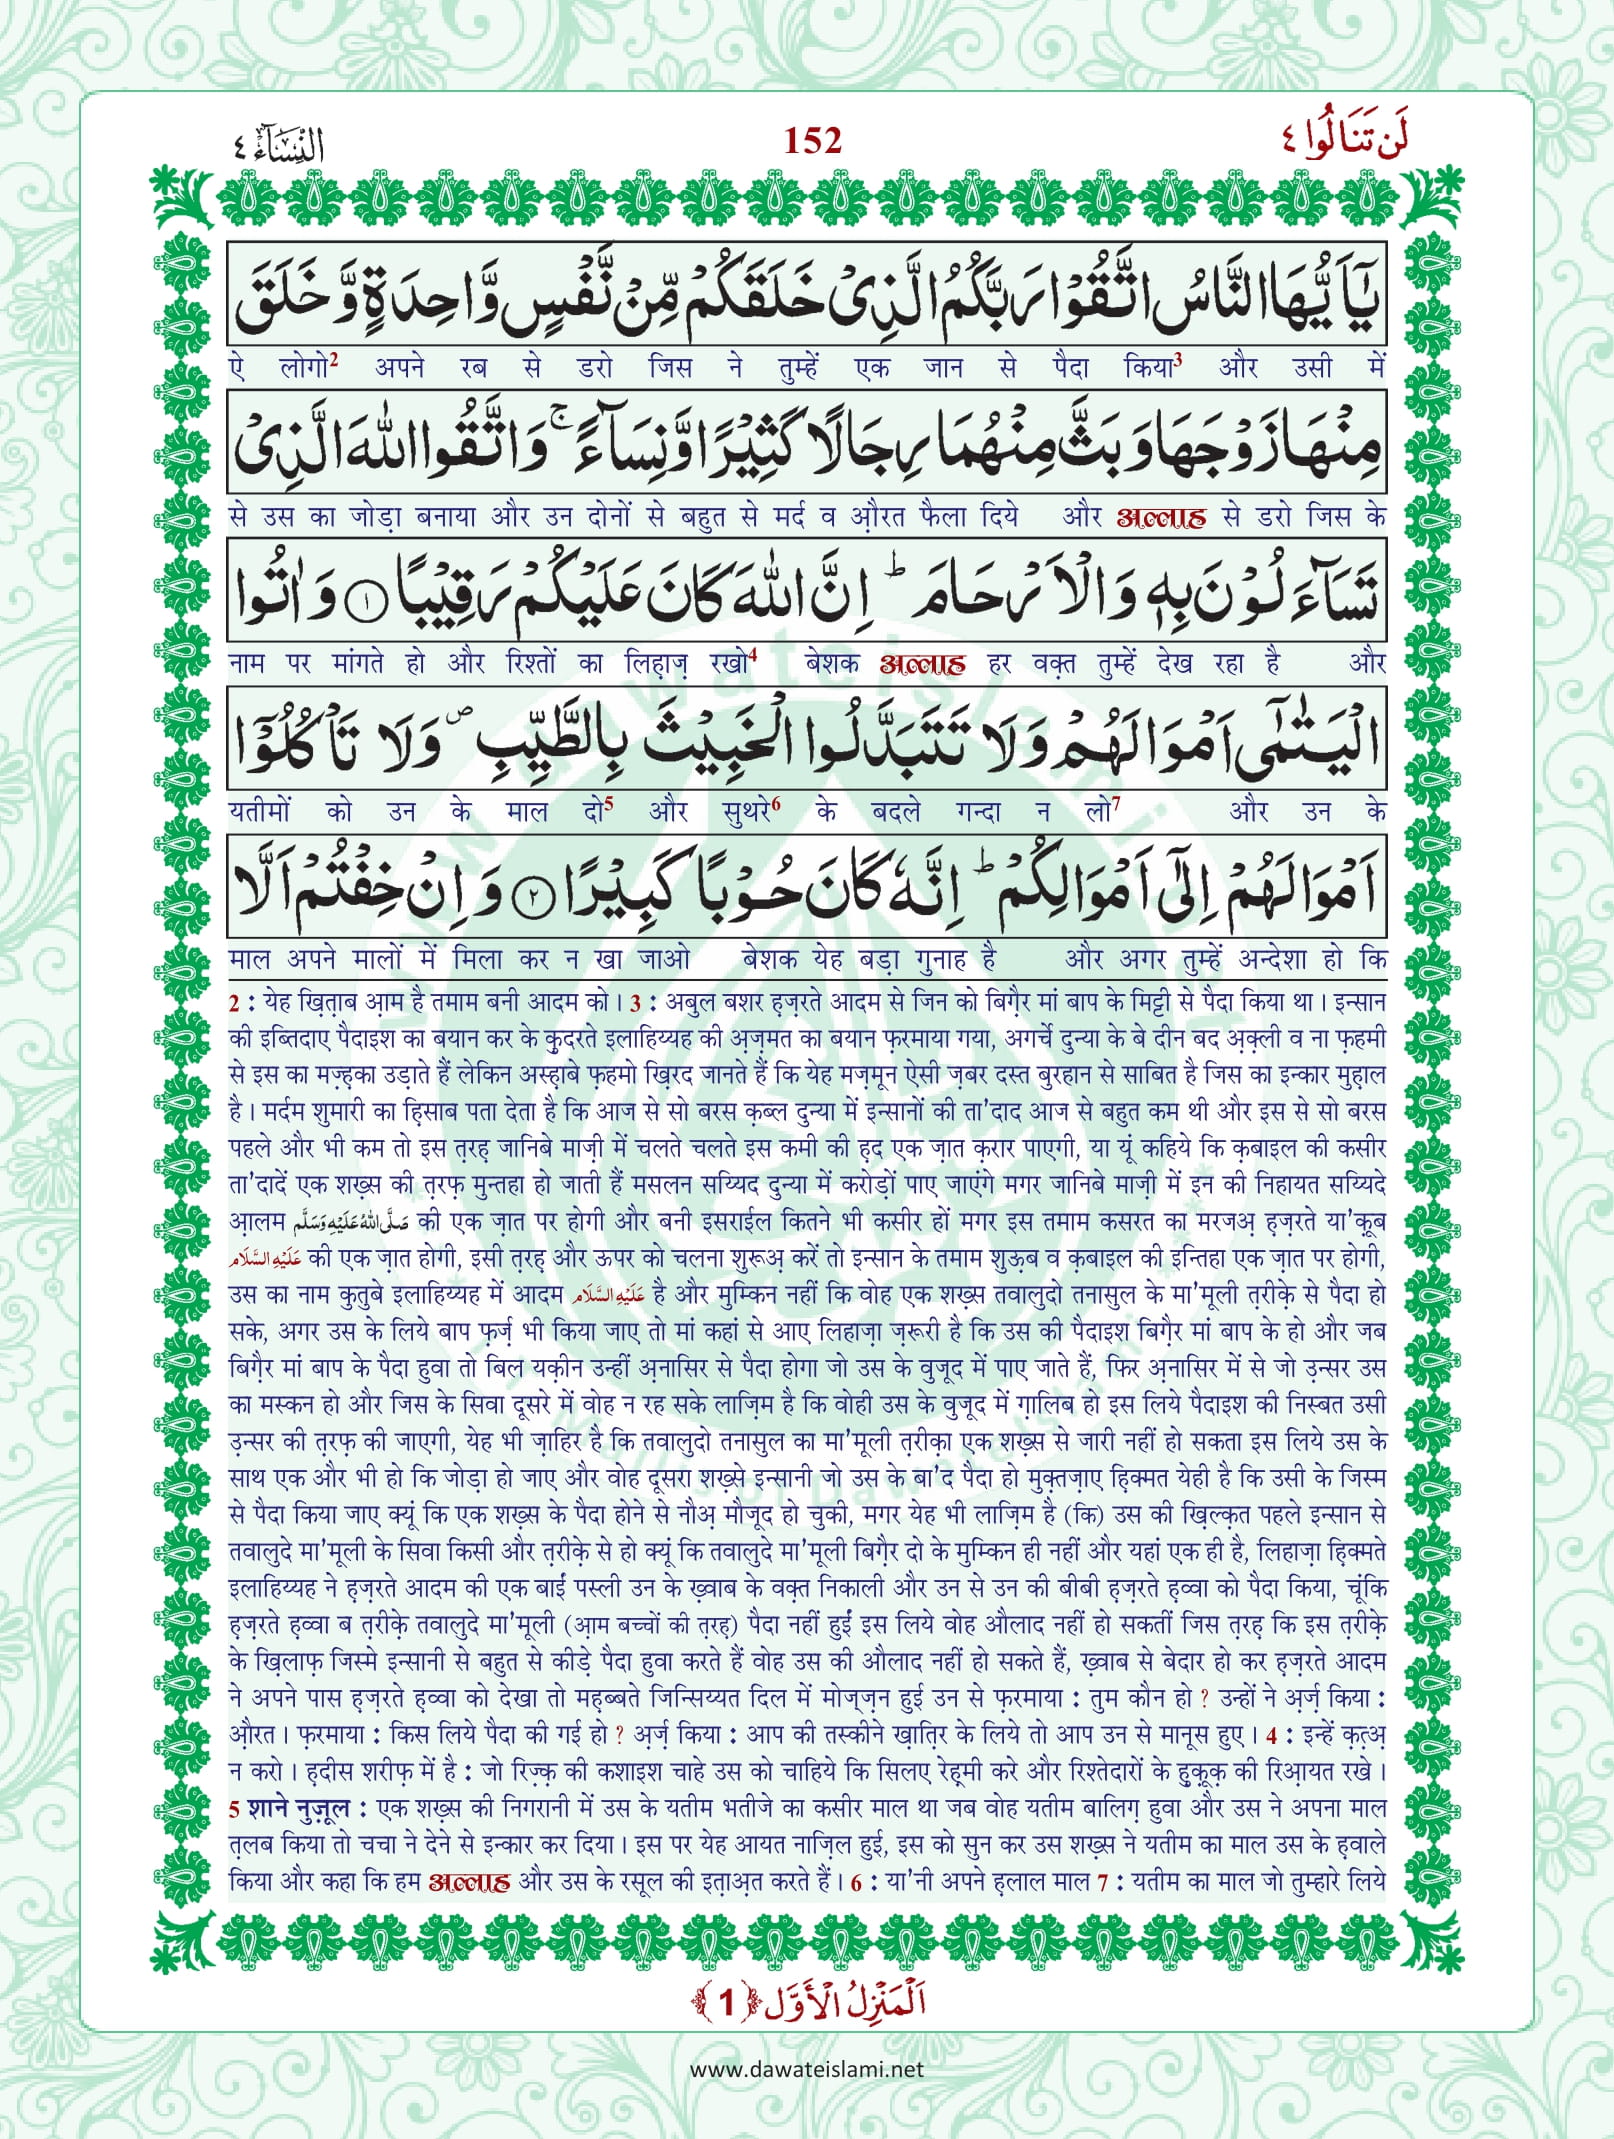 لَنْ تَنَالُوا ٤ 152 اَلنِّسَآء ٤
يٰۤاَيُّهَا النَّاسُ اتَّقُوْا رَبَّكُمُ الَّذِىْ خَلَقَكُمْ مِّنْ نَّفْسٍ وَّاحِدَةٍ وَّ خَلَقَ
ऐ लोगो2 अपने रब से डरो जिस ने तुम्हें एक जान से पैदा किया3 और उसी में
مِنْهَا زَوْجَهَا وَ بَثَّ مِنْهُمَا رِجَالًا كَثِيْرًا وَّ نِسَآءً ۚ وَ اتَّقُوا اللّٰهَ الَّذِىْ
से उस का जोड़ा बनाया और उन दोनों से बहुत से मर्द व औ़रत फैला दिये और अल्लाह से डरो जिस के
تَسَآءَلُوْنَ بِهٖ وَ الْاَرْحَامَ ؕ اِنَّ اللّٰهَ كَانَ عَلَيْكُمْ رَقِيْبًا ① وَ اٰتُوا
नाम पर मांगते हो और रिश्तों का लिह़ाज़ रखो4 बेशक अल्लाह हर वक़्त तुम्हें देख रहा है और
الْيَتٰمٰۤى اَمْوَالَهُمْ وَلَا تَتَبَدَّلُوا الْخَبِيْثَ بِالطَّيِّبِ ۪ وَلَا تَاْكُلُوْۤا
यतीमों को उन के माल दो5 और सुथरे6 के बदले गन्दा न लो7 और उन के
اَمْوَالَهُمْ اِلٰۤى اَمْوَالِكُمْ ؕ اِنَّهٗ كَانَ حُوْبًا كَبِيْرًا ② وَ اِنْ خِفْتُمْ اَلَّا
माल अपने मालों में मिला कर न खा जाओ बेशक येह बड़ा गुनाह है और अगर तुम्हें अन्देशा हो कि
2 : येह ख़ित़ाब आ़म है तमाम बनी आदम को। 3 : अबुल बशर ह़ज़रते आदम से जिन को बिग़ैर मां बाप के मिट्टी से पैदा किया था। इन्सान
की इब्तिदाए पैदाइश का बयान कर के क़ुदरते इलाहिय्यह की अ़ज़मत का बयान फ़रमाया गया, अगर्चे दुन्या के बे दीन बद अ़क़्ली व ना फ़हमी
से इस का मज़्ह़का उड़ाते हैं लेकिन अस्ह़ाबे फ़हमो ख़िरद जानते हैं कि येह मज़्मून ऐसी ज़बर दस्त बुरहान से साबित है जिस का इन्कार मुह़ाल
है। मर्दम शुमारी का ह़िसाब पता देता है कि आज से सो बरस क़ब्ल दुन्या में इन्सानों की ता'दाद आज से बहुत कम थी और इस से सो बरस
पहले और भी कम तो इस त़रह़ जानिबे माज़ी में चलते चलते इस कमी की ह़द एक ज़ात क़रार पाएगी, या यूं कहिये कि क़बाइल की कसीर
ता'दादें एक शख़्स की त़रफ़ मुन्तहा हो जाती हैं मसलन सय्यिद दुन्या में करोड़ों पाए जाएंगे मगर जानिबे माज़ी में इन की निहायत सय्यिदे
आ़लम صَلَّى اللهُ عَلَيْهِ وَسَلَّم की एक ज़ात पर होगी और बनी इसराईल कितने भी कसीर हों मगर इस तमाम कसरत का मरजअ़ ह़ज़रते या'क़ूब
عَلَيْهِ السَّلَام की एक ज़ात होगी, इसी त़रह़ और ऊपर को चलना शुरूअ़ करें तो इन्सान के तमाम शुऊ़ब व क़बाइल की इन्तिहा एक ज़ात पर होगी,
उस का नाम कुतुबे इलाहिय्यह में आदम عَلَيْهِ السَّلَام है और मुम्किन नहीं कि वोह एक शख़्स तवालुदो तनासुल के मा'मूली त़रीक़े से पैदा हो
सके, अगर उस के लिये बाप फ़र्ज़ भी किया जाए तो मां कहां से आए लिहाज़ा ज़रूरी है कि उस की पैदाइश बिग़ैर मां बाप के हो और जब
बिग़ैर मां बाप के पैदा हुवा तो बिल यक़ीन उन्हीं अ़नासिर से पैदा होगा जो उस के वुजूद में पाए जाते हैं, फिर अ़नासिर में से जो उ़न्सर उस
का मस्कन हो और जिस के सिवा दूसरे में वोह न रह सके लाज़िम है कि वोही उस के वुजूद में ग़ालिब हो इस लिये पैदाइश की निस्बत उसी
उ़न्सर की त़रफ़ की जाएगी, येह भी ज़ाहिर है कि तवालुदो तनासुल का मा'मूली त़रीक़ा एक शख़्स से जारी नहीं हो सकता इस लिये उस के
साथ एक और भी हो कि जोड़ा हो जाए और वोह दूसरा शख़्से इन्सानी जो उस के बा'द पैदा हो मुक़्तज़ाए ह़िक्मत येही है कि उसी के जिस्म
से पैदा किया जाए क्यूं कि एक शख़्स के पैदा होने से नौअ़ मौजूद हो चुकी, मगर येह भी लाज़िम है (कि) उस की ख़िल्क़त पहले इन्सान से
तवालुदे मा'मूली के सिवा किसी और त़रीक़े से हो क्यूं कि तवालुदे मा'मूली बिग़ैर दो के मुम्किन ही नहीं और यहां एक ही है, लिहाज़ा ह़िक्मते
इलाहिय्यह ने ह़ज़रते आदम की एक बाईं पस्ली उन के ख़्वाब के वक़्त निकाली और उन से उन की बीबी ह़ज़रते ह़व्वा को पैदा किया, चूंकि
ह़ज़रते ह़व्वा ब त़रीक़े तवालुदे मा'मूली (आ़म बच्चों की त़रह़) पैदा नहीं हुईं इस लिये वोह औलाद नहीं हो सकतीं जिस त़रह़ कि इस त़रीक़े
के ख़िलाफ़ जिस्मे इन्सानी से बहुत से कीड़े पैदा हुवा करते हैं वोह उस की औलाद नहीं हो सकते हैं, ख़्वाब से बेदार हो कर ह़ज़रते आदम
ने अपने पास ह़ज़रते ह़व्वा को देखा तो मह़ब्बते जिन्सिय्यत दिल में मोज्ज़न हुई उन से फ़रमाया : तुम कौन हो ? उन्हों ने अ़र्ज़ किया :
औ़रत। फ़रमाया : किस लिये पैदा की गई हो ? अ़र्ज़ किया : आप की तस्कीने ख़ात़िर के लिये तो आप उन से मानूस हुए। 4 : इन्हें क़त़्अ़
न करो। ह़दीस शरीफ़ में है : जो रिज़्क़ की कशाइश चाहे उस को चाहिये कि सिलए रेह़मी करे और रिश्तेदारों के ह़ुक़ूक़ की रिआ़यत रखे।
5 शाने नुज़ूल : एक शख़्स की निगरानी में उस के यतीम भतीजे का कसीर माल था जब वोह यतीम बालिग़ हुवा और उस ने अपना माल
त़लब किया तो चचा ने देने से इन्कार कर दिया। इस पर येह आयत नाज़िल हुई, इस को सुन कर उस शख़्स ने यतीम का माल उस के ह़वाले
किया और कहा कि हम अल्लाह और उस के रसूल की इत़ाअ़त करते हैं। 6 : या'नी अपने ह़लाल माल 7 : यतीम का माल जो तुम्हारे लिये
اَلْمَنْزِلُ الْاَوَّل ﴿1﴾
www.dawateislami.net